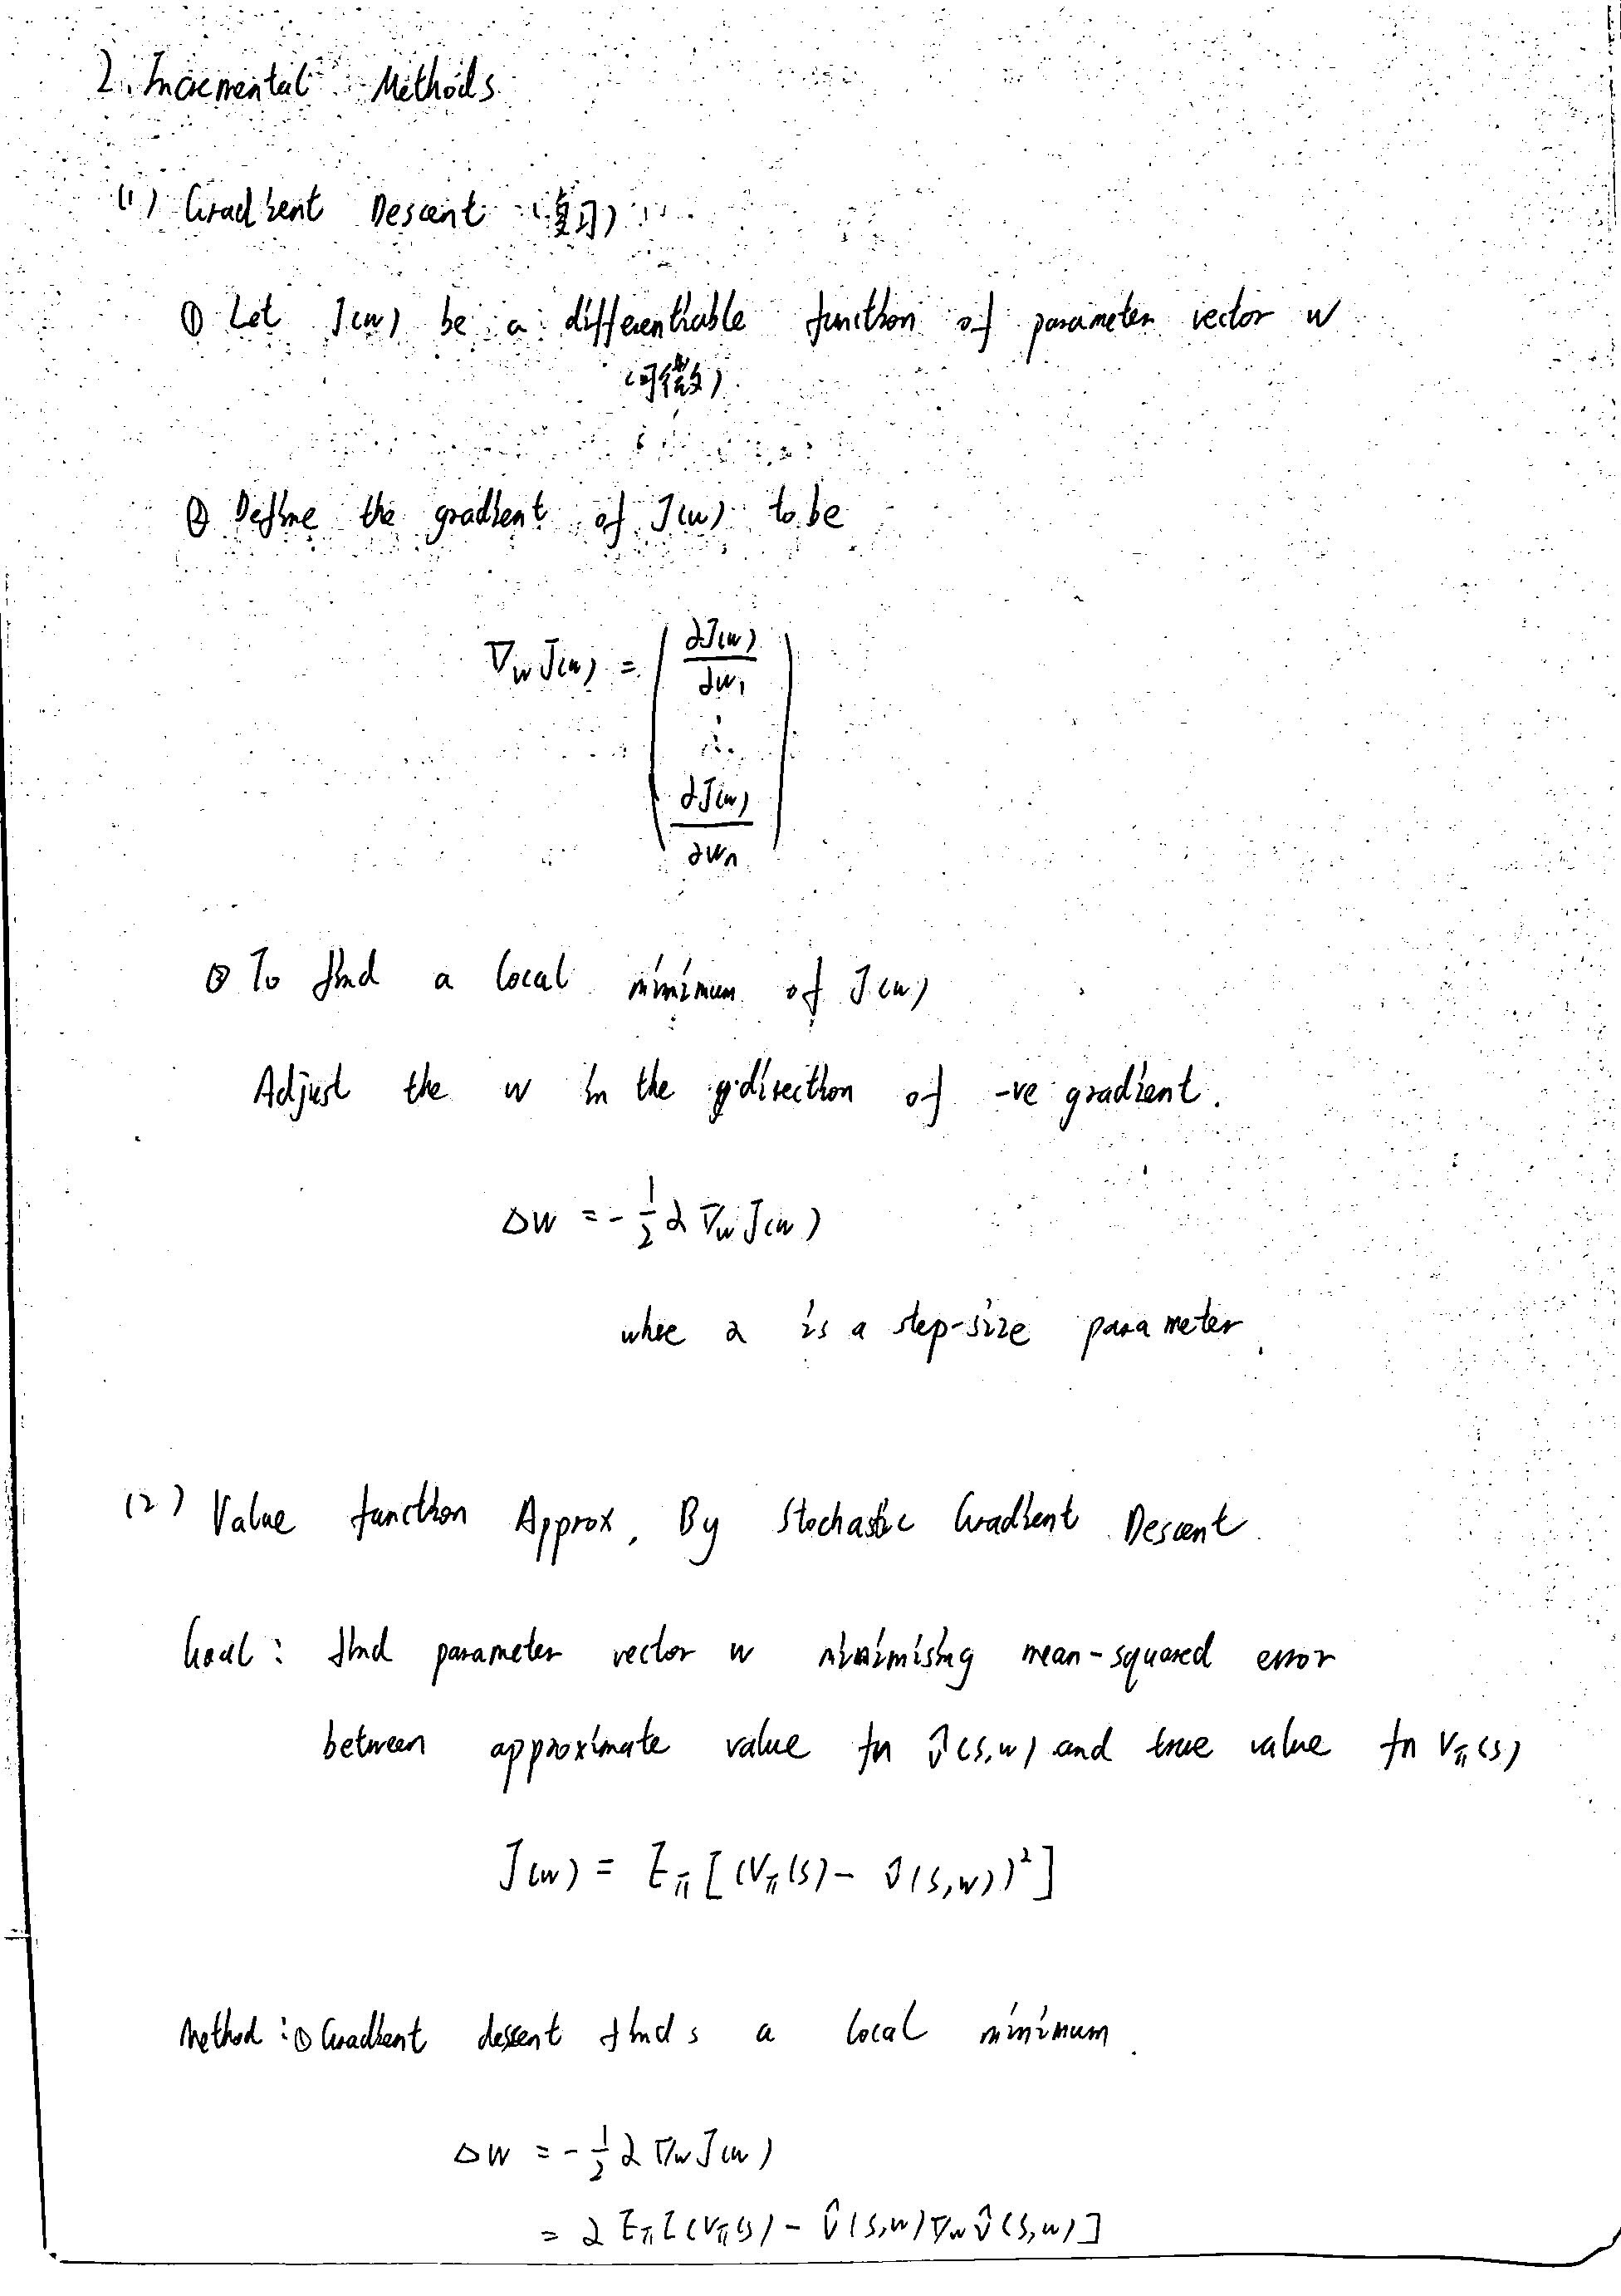 2. Incremental Methods
(1) Gradient Descent (复习)
① Let J(w) be a differentiable function of parameter vector w
(可微)
② Define the gradient of J(w) to be
∇w J(w) = ( ∂J(w)/∂w1 ⋮ ∂J(w)/∂wn )
③ To find a local minimum of J(w)
Adjust the w in the direction of -ve gradient.
Δw = -1/2 α ∇w J(w)
whee α is a step-size parameter
(2) Value function Approx. By Stochastic Gradient Descent
Goal: find parameter vector w minimising mean-squared error
between approximate value fn v̂(s,w) and true value fn Vπ(s)
J(w) = Eπ[(Vπ(s) - v̂(s,w))²]
Method: ① Gradient descent finds a local minimum.
Δw = -1/2 α ∇w J(w)
= α Eπ[(Vπ(s) - v̂(s,w) ∇w v̂(s,w)]